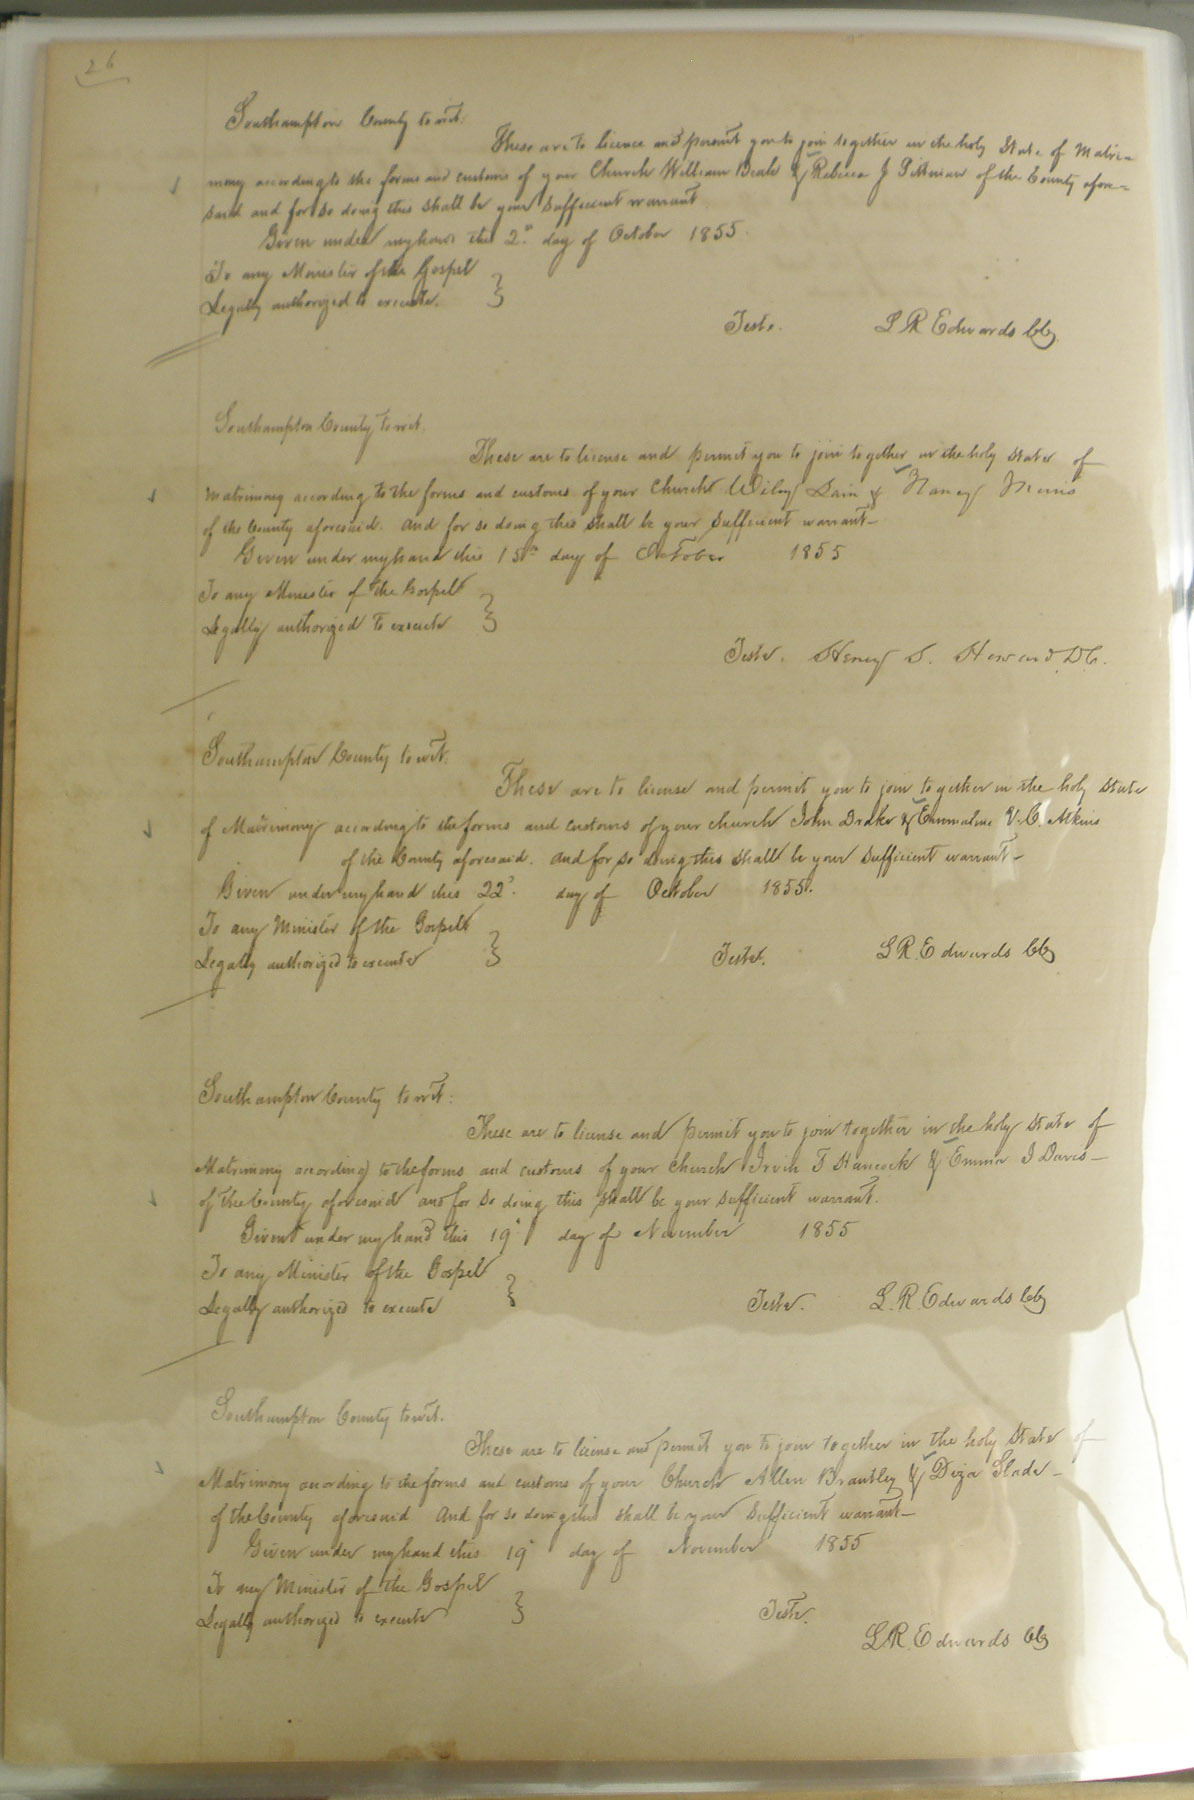 26
Southampton County to wit:
These are to licence and permit you to join together in the holy State of Matri=
mony according to the forms and customs of your Church William Beale & Rebecca J Pittman of the County afore=
said and for so doing this shall be your sufficient warrant
Given under my hand this 2d day of October 1855.
To any Minister of the Gospel
Legally authorized to execute. }
Teste. L R Edwards Clk
Southampton County to wit.
These are to license and permit you to join together in the holy State of
Matrimony according to the forms and customs of your Church Wiley & Nancy
of the County aforesaid. And for so doing this shall be your sufficient warrant—
Given under my hand this 15th day of October 1855
To any Minister of the Gospel
Legally authorized to execute }
Teste. Henry S. Howard, DC.
Southampton County to wit.
These are to license and permit you to join together in the holy State
of Matrimony according to the forms and customs of your church John Drake & Emmaline V. C. Atkins
of the County aforesaid. And for so doing this shall be your sufficient warrant—
Given under my hand this 22d. day of October 1855.
To any Minister of the Gospel
Legally authorized to execute }
Teste. L R. Edwards Clk
Southampton County to wit:
These are to license and permit you to join together in the holy State of
Matrimony according to the forms and customs of your church Irvin T Hancock & Emma J Davis—
of the County aforesaid and for so doing this shall be your sufficient warrant.
Given under my hand this 19th day of November 1855
To any Minister of the Gospel
Legally authorized to execute }
Teste. L. R. Edwards Clk
Southampton County to wit.
These are to license and permit you to join together in the holy State of
Matrimony acording to the forms and customs of your Church Allen Brantley & Diza Slade—
of the County aforesaid And for so doing this shall be your sufficient warrant—
Given under my hand this 19th day of November 1855
To any Minister of the Gospel
Legally authorized to execute }
Teste.
L R. Edwards Clk